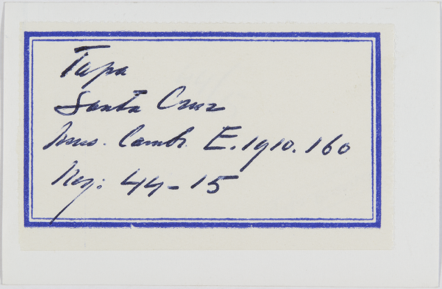 Tapa
Santa Cruz
Mus. Cambr. E.1910.160
Neg: 44-15